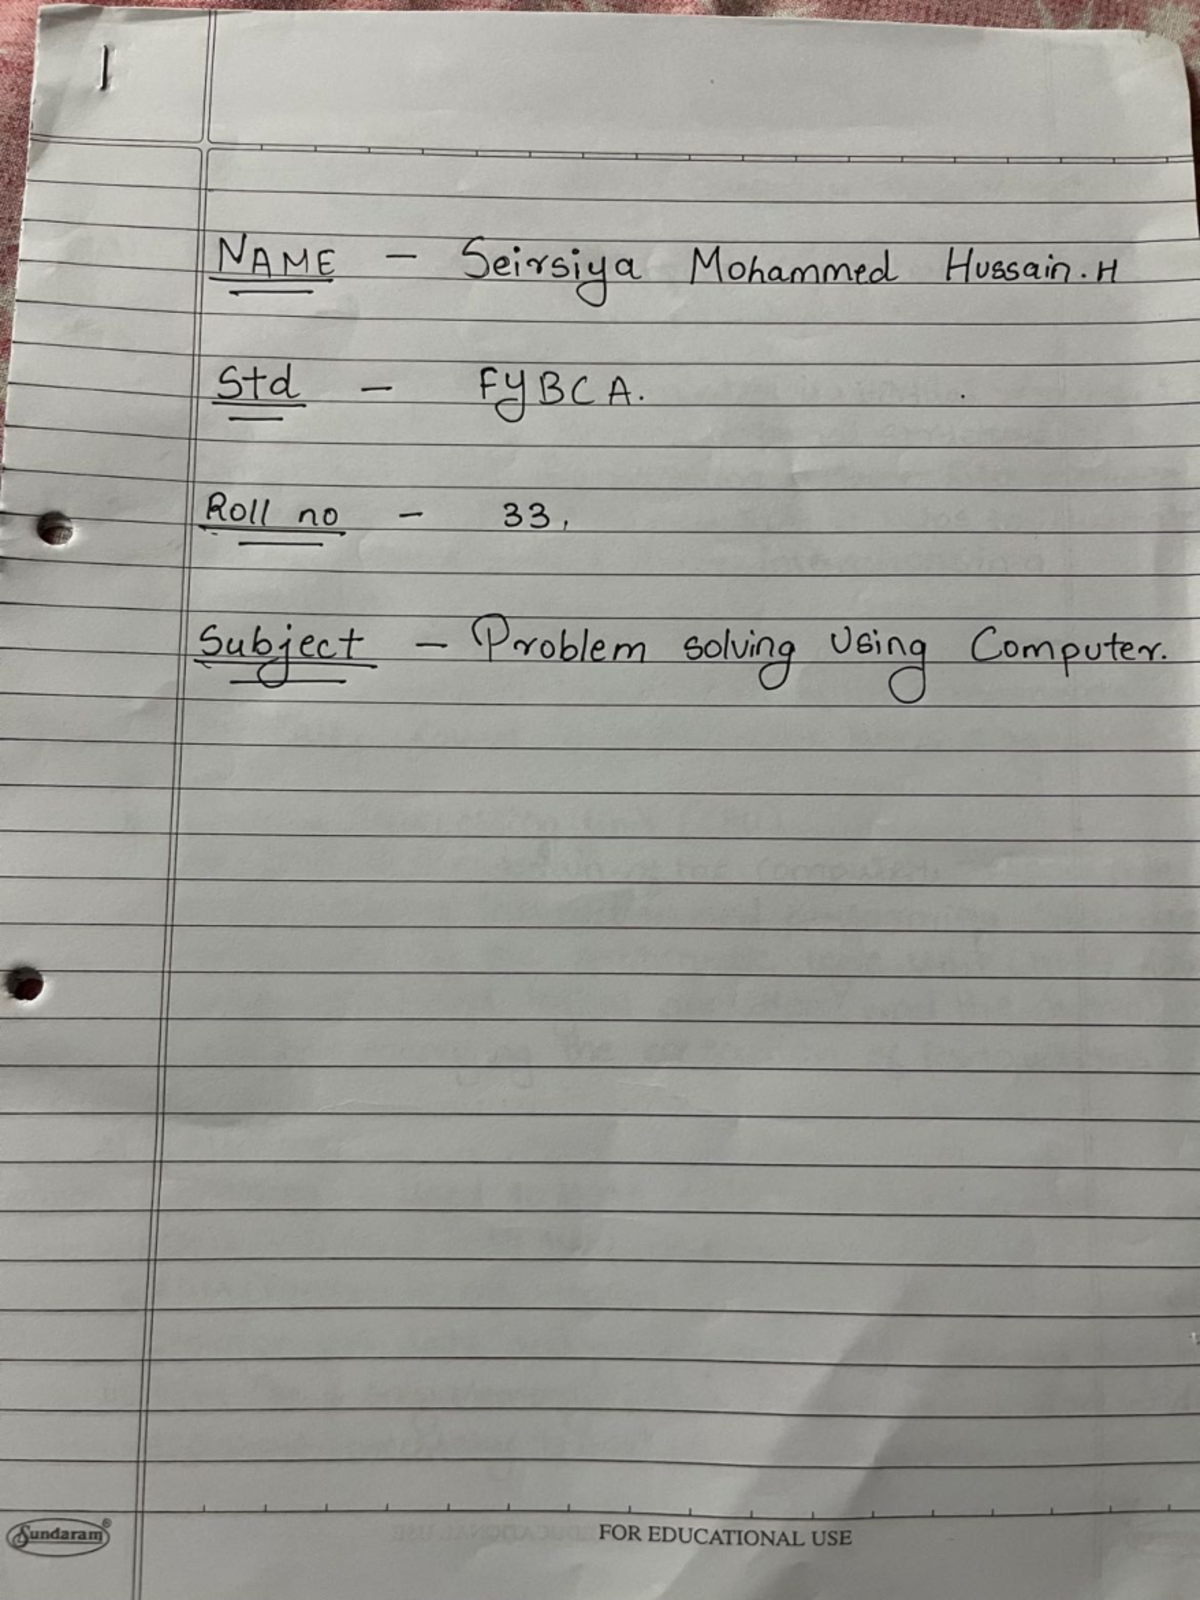 NAME - Seirsiya Mohammed Hussain.H
Std - FYBCA.
Roll no - 33,
Subject - Problem solving Using Computer.
Sundaram®
FOR EDUCATIONAL USE